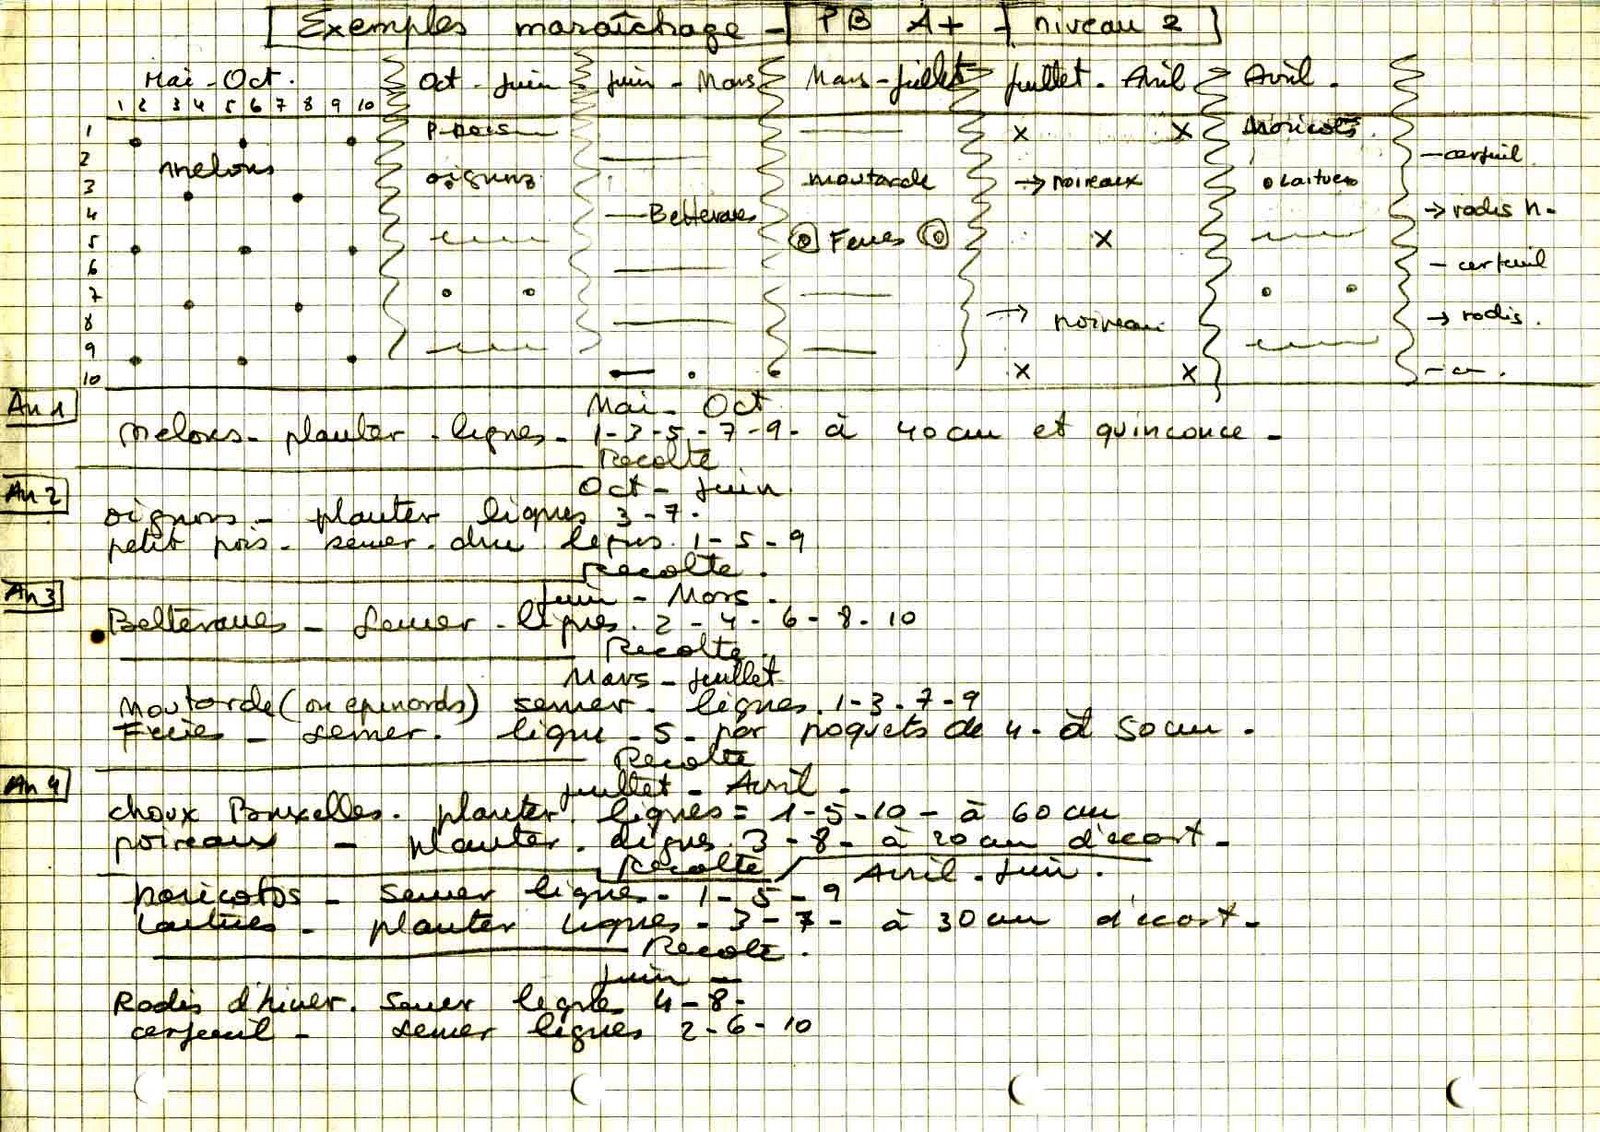 Exemples maraîchage - PB A+ - niveau 2
Mai - Oct. Oct - Juin Juin - Mars Mars - Juillet Juillet - Avril Avril -
1 2 3 4 5 6 7 8 9 10
1 P-pois x x Haricots
2 melons - cerfeuil
3 oignons moutarde → poireaux Laitues
4 Betteraves → radis h.
5 Feves x
6 - cerfeuil
7
8 → poireau → radis.
9
10 x x
An 1
Mai - Oct
melons - planter - lignes - 1-3-5-7-9- à 40 cm et quinconce -
Recolte
An 2
Oct - Juin
oignons - planter lignes 3-7.
petit pois - semer - dru lignes. 1-5-9
Recolte.
An 3
Juin - Mars -
Betteraves - semer - lignes. 2-4-6-8-10
Recolte.
Mars - Juillet
Moutarde (ou epinards) semer - lignes. 1-3-7-9
Feves - semer. ligne -5- par poquets de 4- à 50 cm -
Recolte
An 4
Juillet - Avril -
choux Bruxelles. planter. lignes = 1-5-10- à 60 cm
poireaux - planter. lignes. 3-8- à 20 cm d'écart -
Recolte
Avril - Juin.
haricots - semer ligne - 1-5-9
Laitues - planter lignes - 3-7- à 30 cm d'écart -
Recolte.
Juin -
Radis d'hiver. semer ligne 4-8-
cerfeuil - semer lignes 2-6-10